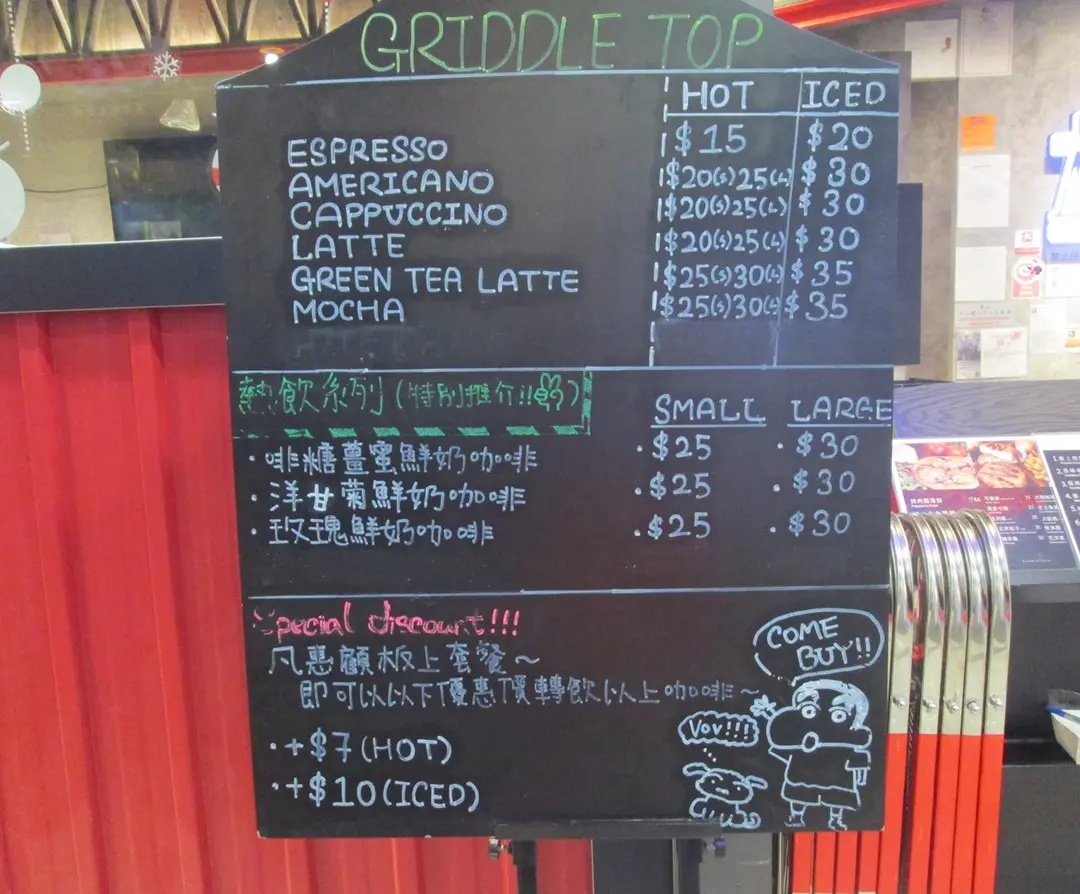 GRIDDLE TOP
HOT ICED
ESPRESSO $15 $20
AMERICANO $20(S)25(L) $30
CAPPUCCINO $20(S)25(L) $30
LATTE $20(S)25(L) $30
GREEN TEA LATTE $25(S)30(L) $35
MOCHA $25(S)30(L) $35
熱飲系列(特別推介!!)
SMALL LARGE
·啡糖薑蜜鮮奶咖啡 ·$25 ·$30
·洋甘菊鮮奶咖啡 ·$25 ·$30
·玫瑰鮮奶咖啡 ·$25 ·$30
Special discount!!!
凡惠顧板上套餐~
即可以以下優惠價轉飲以上咖啡~
·+$7(HOT)
·+$10(ICED)
COME
BUY!!
VOV!!!